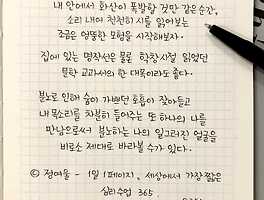 내 안에서 화산이 폭발할 것만 같은 순간,
소리 내어 천천히 시를 읽어보는
조금은 엉뚱한 모험을 시작해보자.
집에 있는 명작선은 물론 학창시절 읽었던
문학 교과서의 한 대목이라도 좋다.
분노로 인해 숨이 가쁘던 호흡이 잦아들고
내 목소리를 차분히 들어주는 또 하나의 나를
만남으로써 분노하는 나의 일그러진 얼굴을
비로소 제대로 바라볼 수가 있다.
© 정여울 - 1일 1페이지, 세상에서 가장 짧은
심리수업 365.